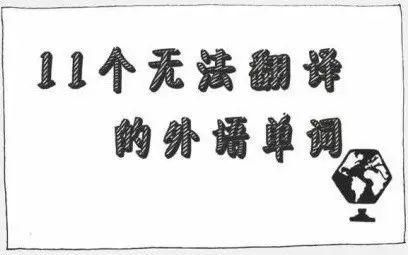 11个无法翻译
的外语单词